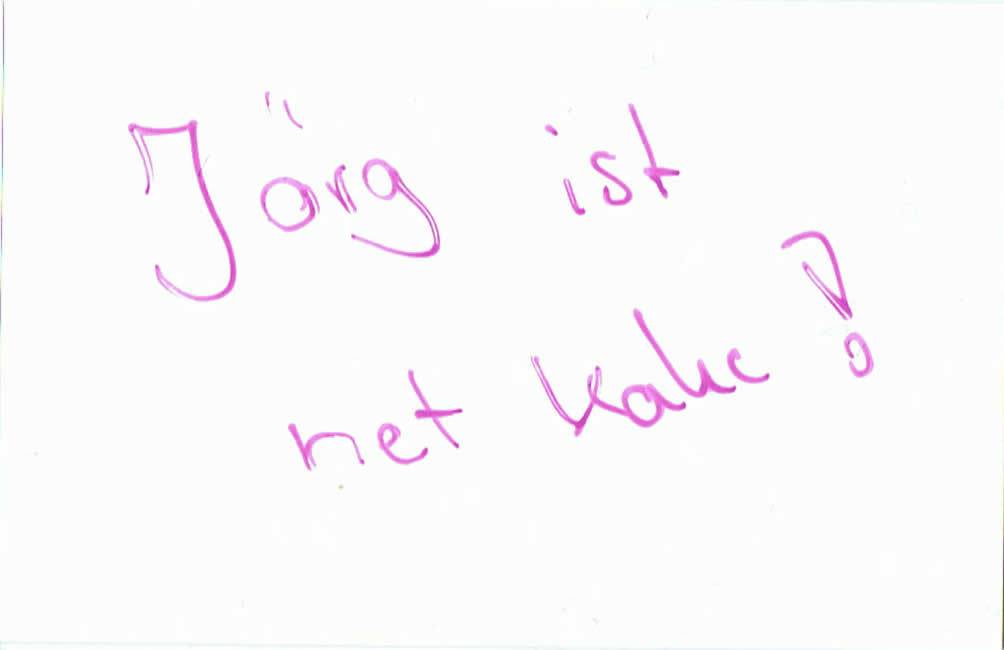 Jörg ist
net Kake!